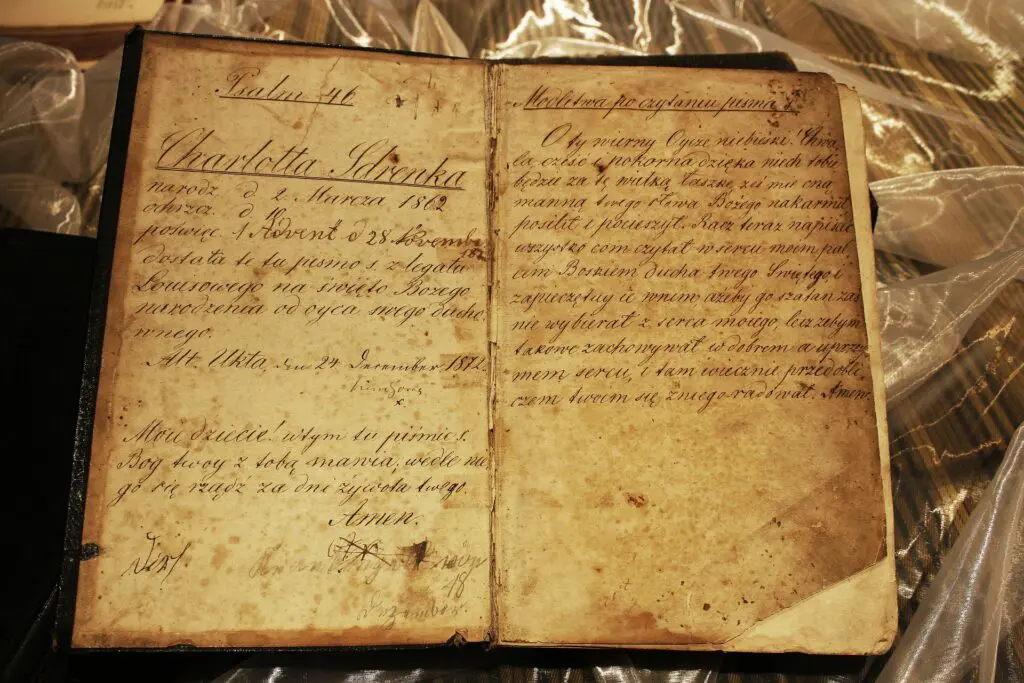 Psalm 46
Charlotta Sdrenka
narodz. d. 2. Marcza 1862
ochrzcz. d.
poswięc. 1 Advent d 28 Novembr
dostała te tu pismo s. z legatu
Louisowego na święto Bożego
narodzenia od oyca swego ducho
wnego.
Alt. Ukta, den 24 December, 1872.
Moie dziecie! wtym tu piśmie s.
Bog twoy z tobą mawia, wedle nie
go się rządź za dni żywota twego.
Amen.
18
Dezember.
Modlitwa po czytaniu pisma s.
O ty wierny Oycze niebieski! Chwa
la, cześć i pokorna dzięka niech tobie
będzie za tę wielką łaskę, żeś mie oną
manną twego słowa Bożego nakarmił
posilił i pocieszył. Racz teraz napisać
wszystko com czytał w sercu moiem pal
cem Boskiem ducha twego Swiętego i
zapieczętuy ie wnim, ażeby go szatan zaś
nie wybierał z serca moiego, lecz żebym
takowe zachowywał w dobrem a uprzy
memy sercu, i tam wiecznie przed obli
czem twoiem się zniego radował. Amen.